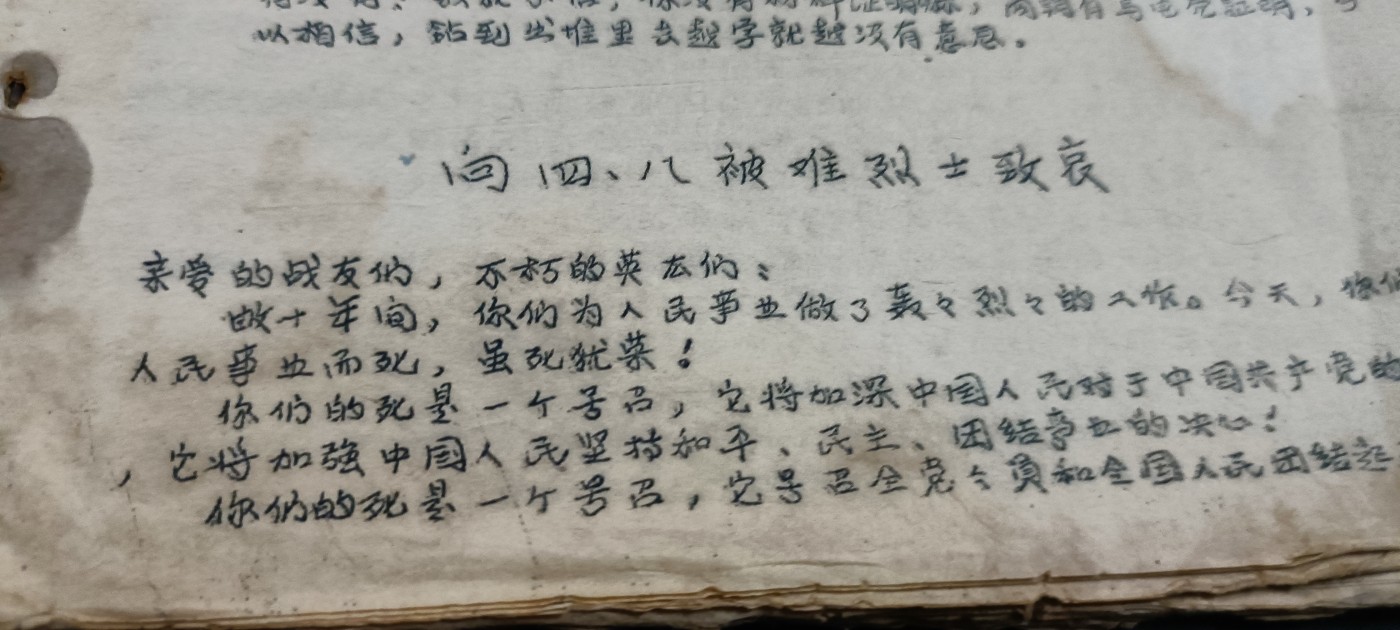 以相信，钻到书堆里去越学就越没有意思。
向四、八被难烈士致哀
亲爱的战友们，不朽的英雄们：
数十年间，你们为人民事业做了轰々烈々的工作。今天，你们
人民事业而死，虽死犹荣！
你们的死是一个号召，它将加深中国人民对于中国共产党的
，它将加强中国人民坚持和平、民主、团结事业的决心！
你们的死是一个号召，它号召全党々员和全国人民团结起